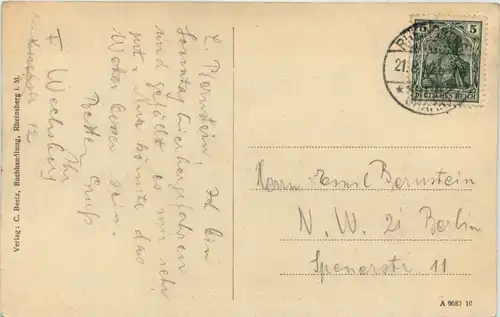 L. Bernstein! Ich bin
Sonntag hierhergefahren
und gefällt es mir sehr
gut. Nur könnte das
Wetter besser sein.
Besten Gruß
Ihr
F Wechsberg
12
Verlag: C. Beetz, Buchhandlung, Rheinsberg i. M.
5 5
DEUTSCHES REICH
21.
Herrn Emil Bernstein
N. W. 21 Berlin
Spenerstr 11
A 9680 10